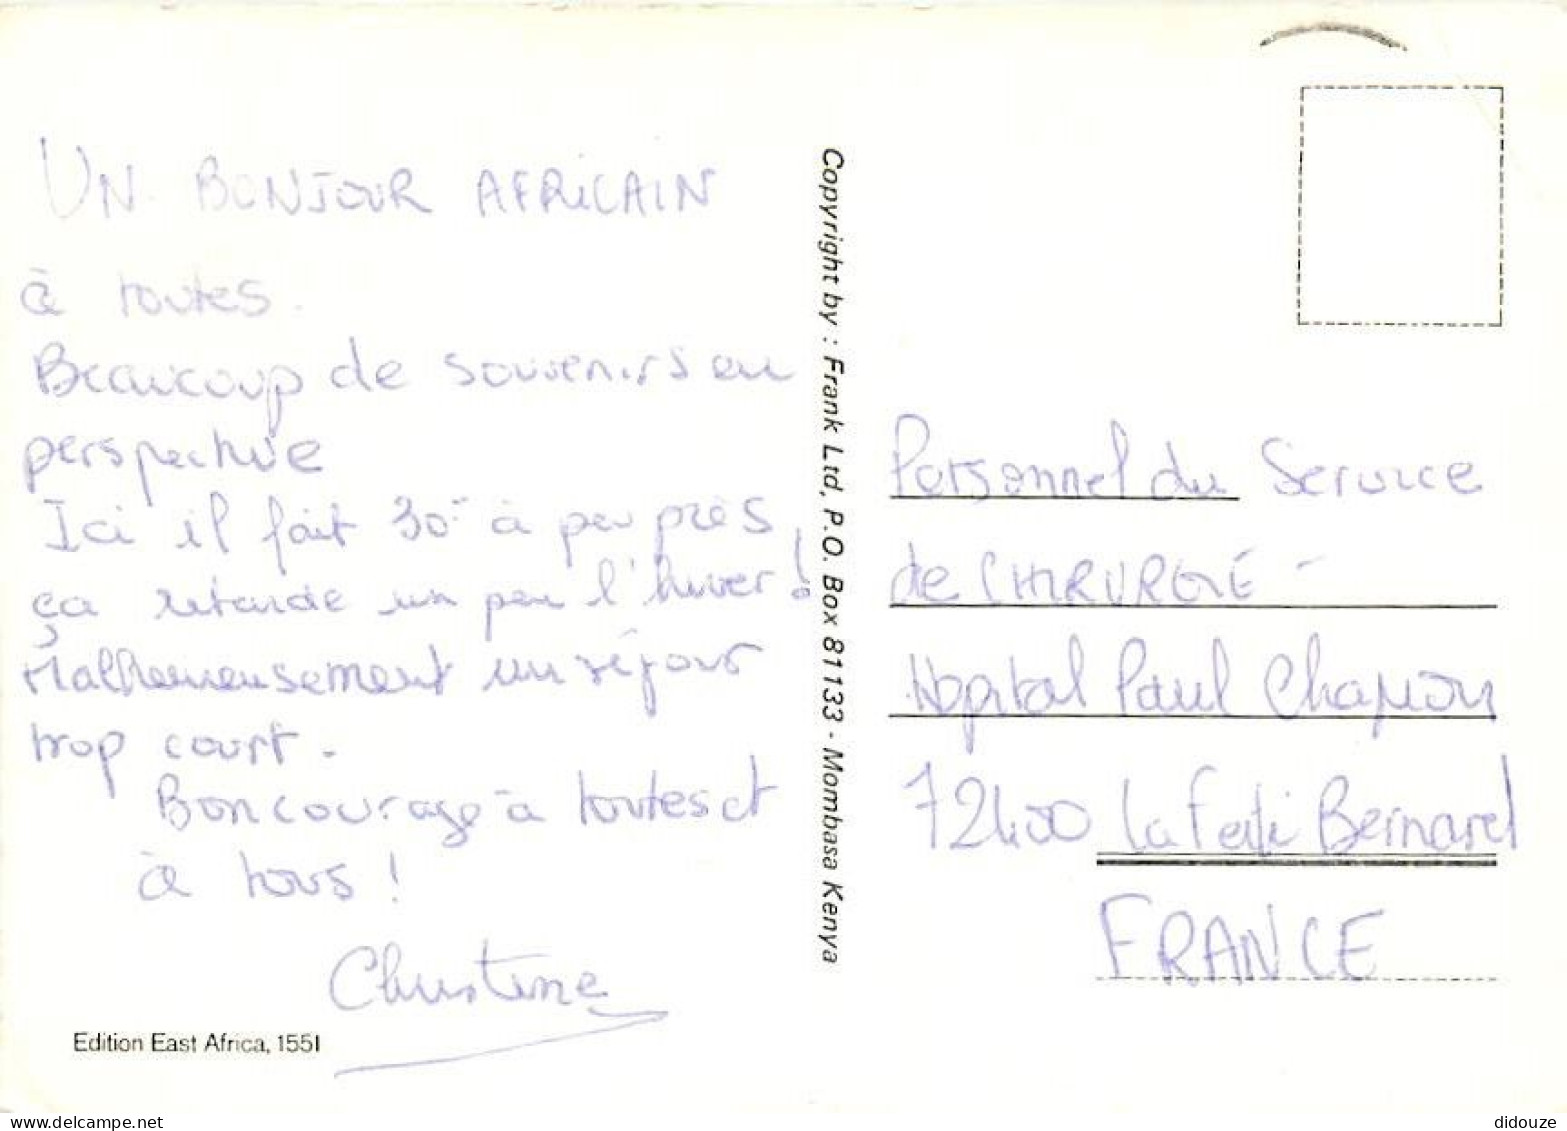 UN BONJOUR AFRICAIN
à toutes.
Beaucoup de souvenirs en
perspective
Ici il fait 30° à peu près
ça retarde un peu l'hiver !
Malheureusement un séjour
trop court.
Bon courage à toutes et
à tous !
Christine
Edition East Africa, 1551
Copyright by : Frank Ltd, P.O. Box 81133 - Mombasa Kenya
Personnel du Service
de CHIRURGIE -
Hopital Paul Chapron
72400 La Ferté Bernard
FRANCE
delcampe.net
didouze